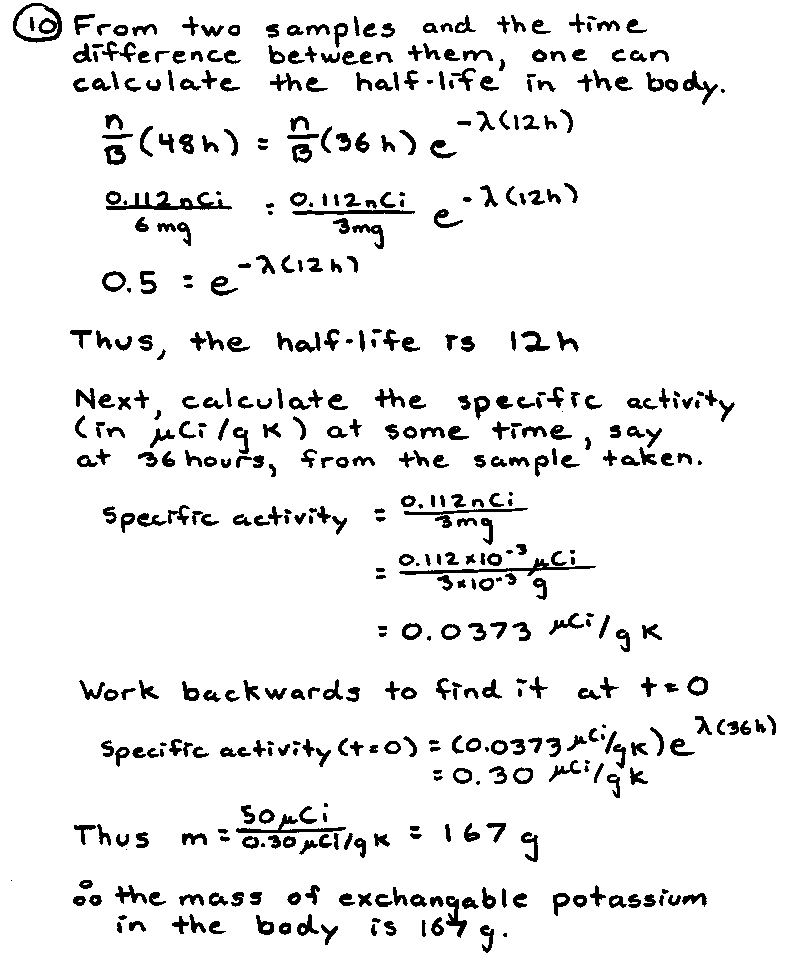 10 From two samples and the time
difference between them, one can
calculate the half-life in the body.
n/B (48h) = n/B (36h) e^-λ(12h)
0.112nCi/6mg = 0.112nCi/3mg e^-λ(12h)
0.5 = e^-λ(12h)
Thus, the half-life is 12h
Next, calculate the specific activity
(in μCi/g K) at some time, say
at 36 hours, from the sample taken.
Specific activity = 0.112nCi/3mg
= 0.112×10^-3 μCi/3×10^-3 g
= 0.0373 μCi/g K
Work backwards to find it at t=0
Specific activity (t=0) = (0.0373 μCi/gK) e^λ(36h)
= 0.30 μCi/g K
Thus m = 50μCi/0.30μCi/g K = 167 g
∴ the mass of exchangable potassium
in the body is 167 g.